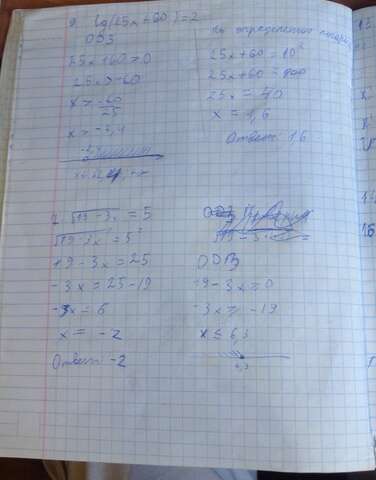 9. lg(25x+60)=2
ОДЗ
25x+60>0
25x>-60
x > -60/25
x > -2,4
По определению
25x+60=10²
25x+60=100
25x = 40
x = 1,6
Ответ 1.6
√19-3x = 5
√19-3x = 5²
19-3x=25
-3x = 25-19
-3x = 6
x = -2
Ответ -2
ОДЗ
19-3x≥0
-3x ≥ -19
x ≤ 6,3
6,3